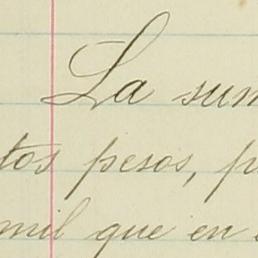 La sum
tos pesos, p
mil que en